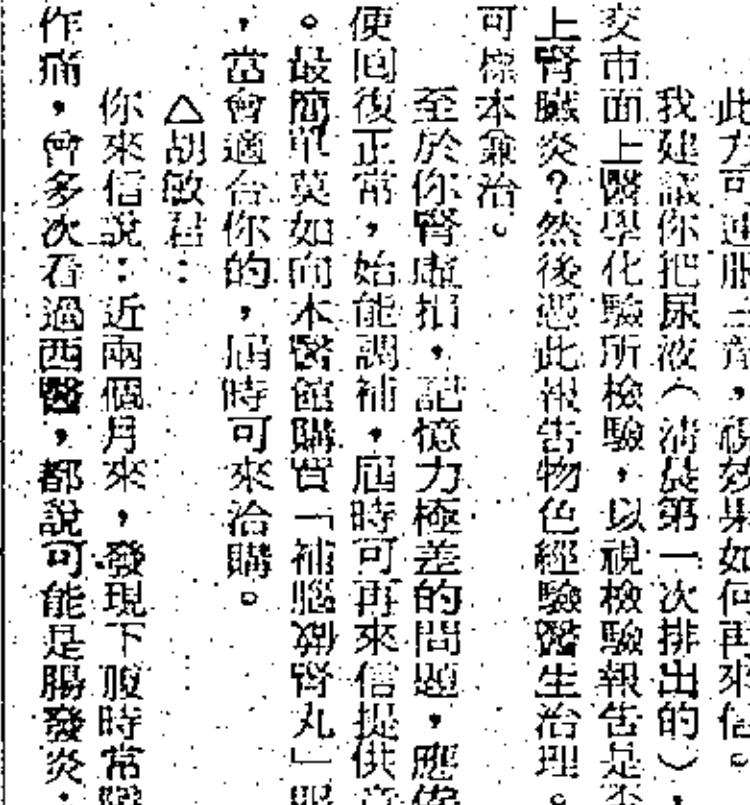 此方可連服三劑，視效果如何再來信。
我建議你把尿液（清晨第一次排出的），
交市面上醫學化驗所檢驗，以視檢驗報告是否
上腎臟炎？然後憑此報告物色經驗醫生治理。
可標本兼治。
至於你腎虛損，記憶力極差的問題，應俟
便回復正常，始能調補，屆時可再來信提供
。最簡單莫如向本醫館購買「補腦劑腎丸」服
，當會適合你的，屆時可來洽購。
△胡敏君：
你來信說：近兩個月來，發現下腹時常
作痛，曾多次看過西醫，都說可能是腸發炎，